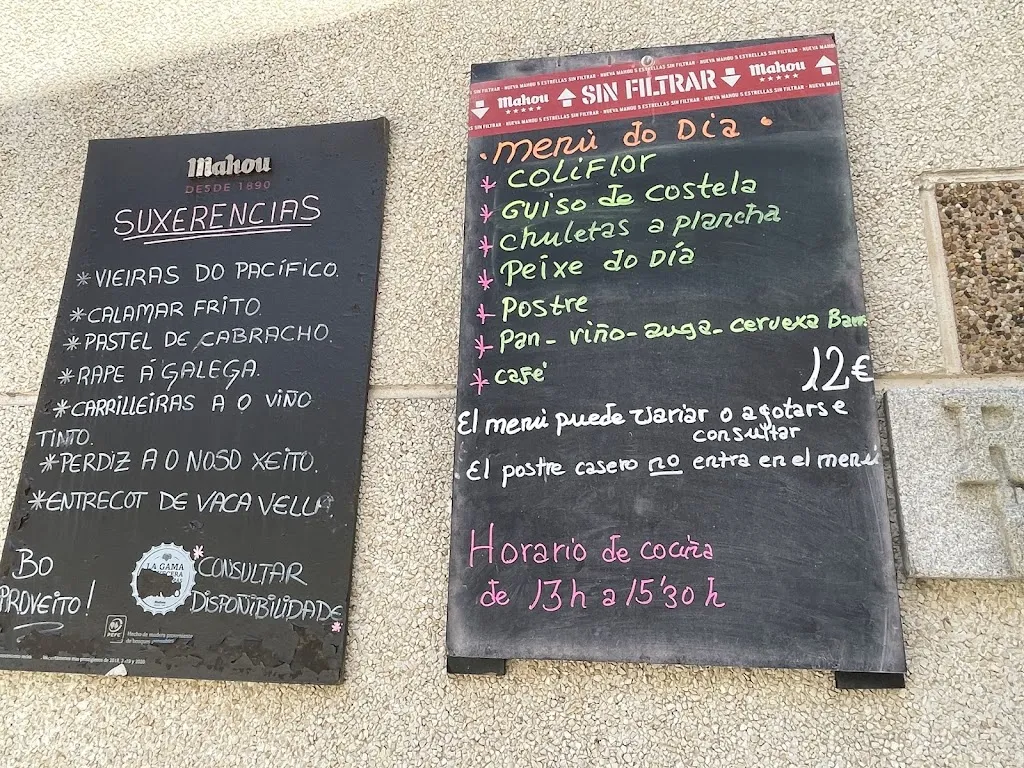 Mahou
DESDE 1890
SUXERENCIAS
*VIEIRAS DO PACÍFICO.
*CALAMAR FRITO.
*PASTEL DE CABRACHO.
*RAPE Á GALEGA.
*CARRILLEIRAS A O VIÑO
TINTO.
*PERDIZ A O NOSO XEITO.
*ENTRECOT DE VACA VELLA
BO
PROVEITO!
LA GAMA
*CONSULTAR
DISPOÑIBILIDADE*
PEFC
SIN FILTRAR · NUEVA MAHOU 5 ESTRELLAS SIN FILTRAR · NUEVA MAHOU 5 ESTRELLAS SIN FILTRAR · NUEVA MAHOU
Mahou SIN FILTRAR Mahou
SIN FILTRAR · NUEVA MAHOU 5 ESTRELLAS SIN FILTRAR · NUEVA MAHOU 5 ESTRELLAS SIN FILTRAR · NUEVA MAHOU
·menú do Día·
* COLiFlor
* Guiso de costela
* chuletas a plancha
* Peixe do Día
* Postre
* Pan - viño - auga - cervexa
* café
12€
El menú puede variar o agotarse
consultar
. El postre casero no entra en el menú
Horario de cociña
de 13h a 15'30 h